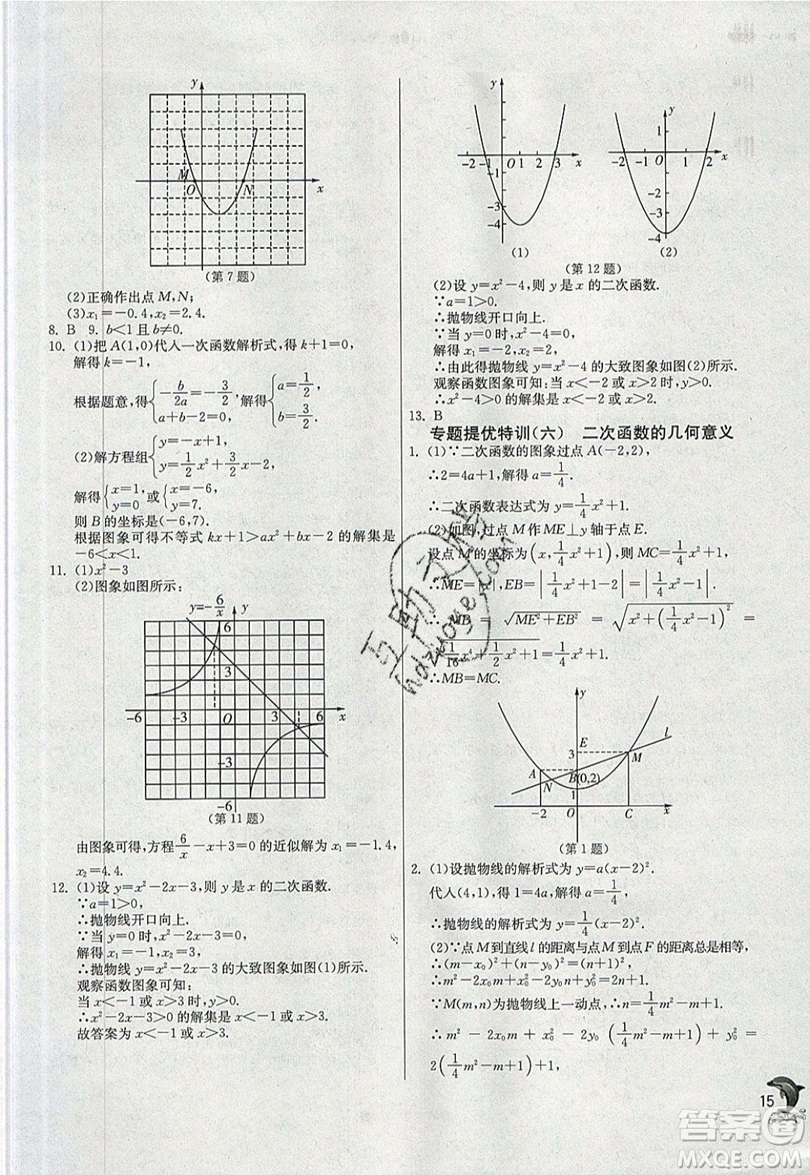 y
M
O
N
x
(第 7 题)
(2)正确作出点 M,N;
(3)x₁=-0.4,x₂=2.4.
8. B 9. b<1 且 b≠0.
10. (1)把 A(1,0)代入一次函数解析式,得 k+1=0,
解得 k=-1,
根据题意,得{-b/2a=-3/2, a+b-2=0, 解得{a=1/2, b=3/2.
(2)解方程组{y=-x+1, y=1/2x²+3/2x-2,
解得{x=1, y=0 或{x=-6, y=7.
则 B 的坐标是(-6,7).
根据图象可得不等式 kx+1>ax²+bx-2 的解集是
-6<x<1.
11. (1)x²-3
(2)图象如图所示:
y=-6/x
6
3
-6 -3 O 3 6 x
-3
-6
(第 11 题)
由图象可得,6/x-x+3=0 的近似解为 x₁=-1.4,
x₂=4.4.
12. (1)设 y=x²-2x-3,则 y 是 x 的二次函数.
∵a=1>0,
∴抛物线开口向上.
∵当 y=0 时,x²-2x-3=0,
解得 x₁=-1,x₂=3.
∴抛物线 y=x²-2x-3 的大致图象如图(1)所示.
观察函数图象可知:
当 x<-1 或 x>3 时,y>0,
∴x²-2x-3>0 的解集是 x<-1 或 x>3.
故答案为 x<-1 或 x>3.
y
-2 -1 O 1 2 3 x
-1
-3
-4
(1)
y
1
-2 -1 O 1 2 x
-1
-2
-3
-4
(2)
(第 12 题)
(2)设 y=x²-4,则 y 是 x 的二次函数.
∵a=1>0.
∴抛物线开口向上.
∵当 y=0 时,x²-4=0,
解得 x₁=-2,x₂=2.
∴抛物线 y=x²-4 的大致图象如图(2)所示.
观察函数图象可知:当 x<-2 或 x>2 时,y>0,
∴x²-4>0 的解集是 x<-2 或 x>2.
13. B
专题提优特训(六) 二次函数的几何意义
1. (1)∵二次函数的图象过点 A(-2,2),
∴2=4a+1,解得 a=1/4.
∴二次函数表达式为 y=1/4x²+1.
(2)如图,过点 M 作 ME⊥y 轴于点 E.
设点 M 的坐标为(x,1/4x²+1),则 MC=1/4x²+1.
∴ME=|x|,EB=|1/4x²+1-2|=|1/4x²-1|.
∴MB=√(ME²+EB²)=√(x²+(1/4x²-1)²)=
√(1/16x⁴+1/2x²+1)=1/4x²+1.
∴MB=MC.
y
E
3
l
M
A
B(0,2)
N
1
-2 O C x
(第 1 题)
2. (1)设抛物线的解析式为 y=a(x-2)².
代入(4,1),得 1=4a,解得 a=1/4.
∴抛物线的解析式为 y=1/4(x-2)².
(2)∵点 M 到直线 l 的距离与点 M 到点 F 的距离总是相等,
∴(m-x₀)²+(n-y₀)²=(n+1)².
∴m²-2x₀m+x₀²-2y₀n+y₀²=2n+1.
∵M(m,n)为抛物线上一动点,∴n=1/4m²-m+1.
∴m²-2x₀m+x₀²-2y₀(1/4m²-m+1)+y₀²=
2(1/4m²-m+1)+1,
15
互助文档
hdzuoye.com
答案圈
MXQE.COM